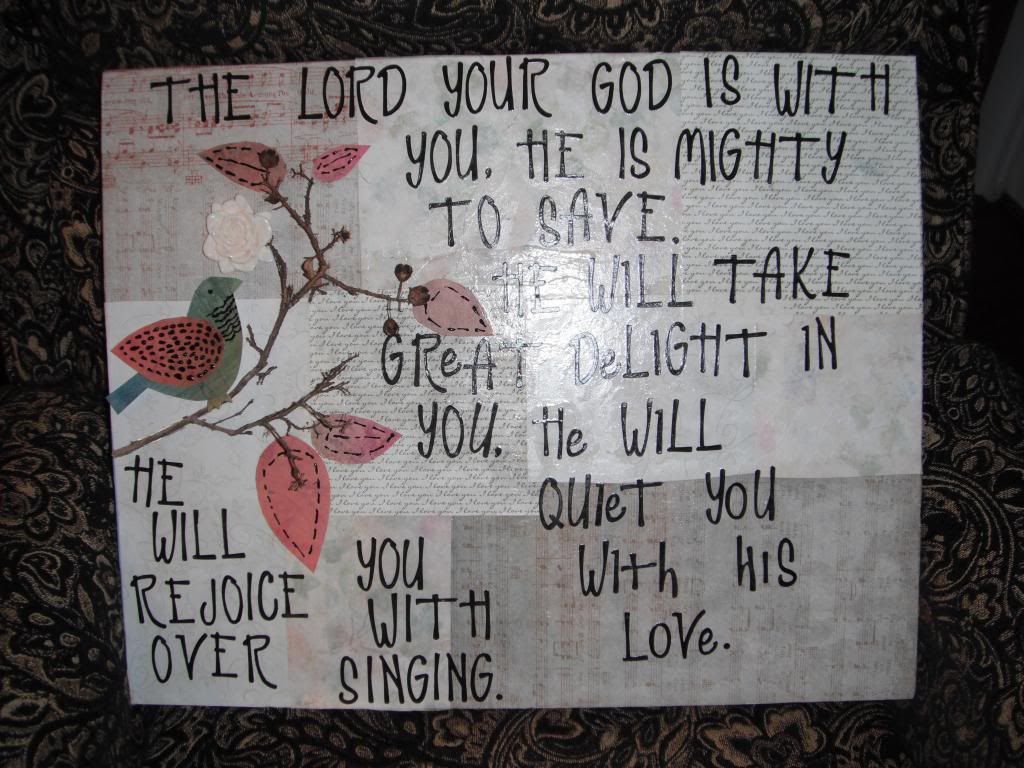 THE LORD YOUR GOD IS WITH
YOU. HE IS MIGHTY
TO SAVE.
HE WILL TAKE
GReAT DeLIGHT IN
YOU. He WILL
QUIeT YOU
WITh HIS
LOVe.
HE
WILL
REJOICE
OVER
YOU
WITH
SINGING.